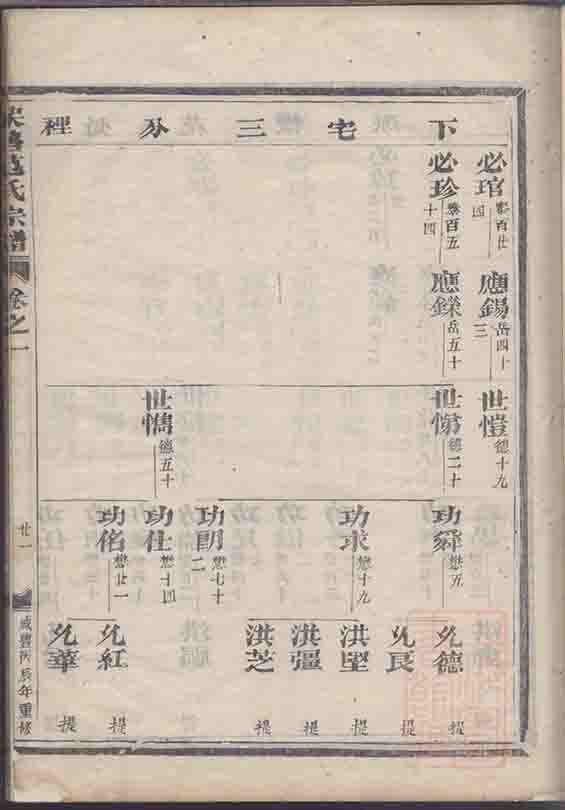 下宅三分裡
必琯 懋百廿四
必珍 懋百五十四
應錫 岳四十三
應鑅 岳五十
世愷 德十九
世悌 德二十
世㦎 德五十
功舜 懋五
功求 懋十九
功朙 懋七十二
功仕 懋十四
功佲 懋廿一
允德 提
允艮
洪堅 提
洪彊 提
洪芝 提
允紅 提
允華 提
氏宗譜
卷之一
廿一
咸豐丙辰年重修